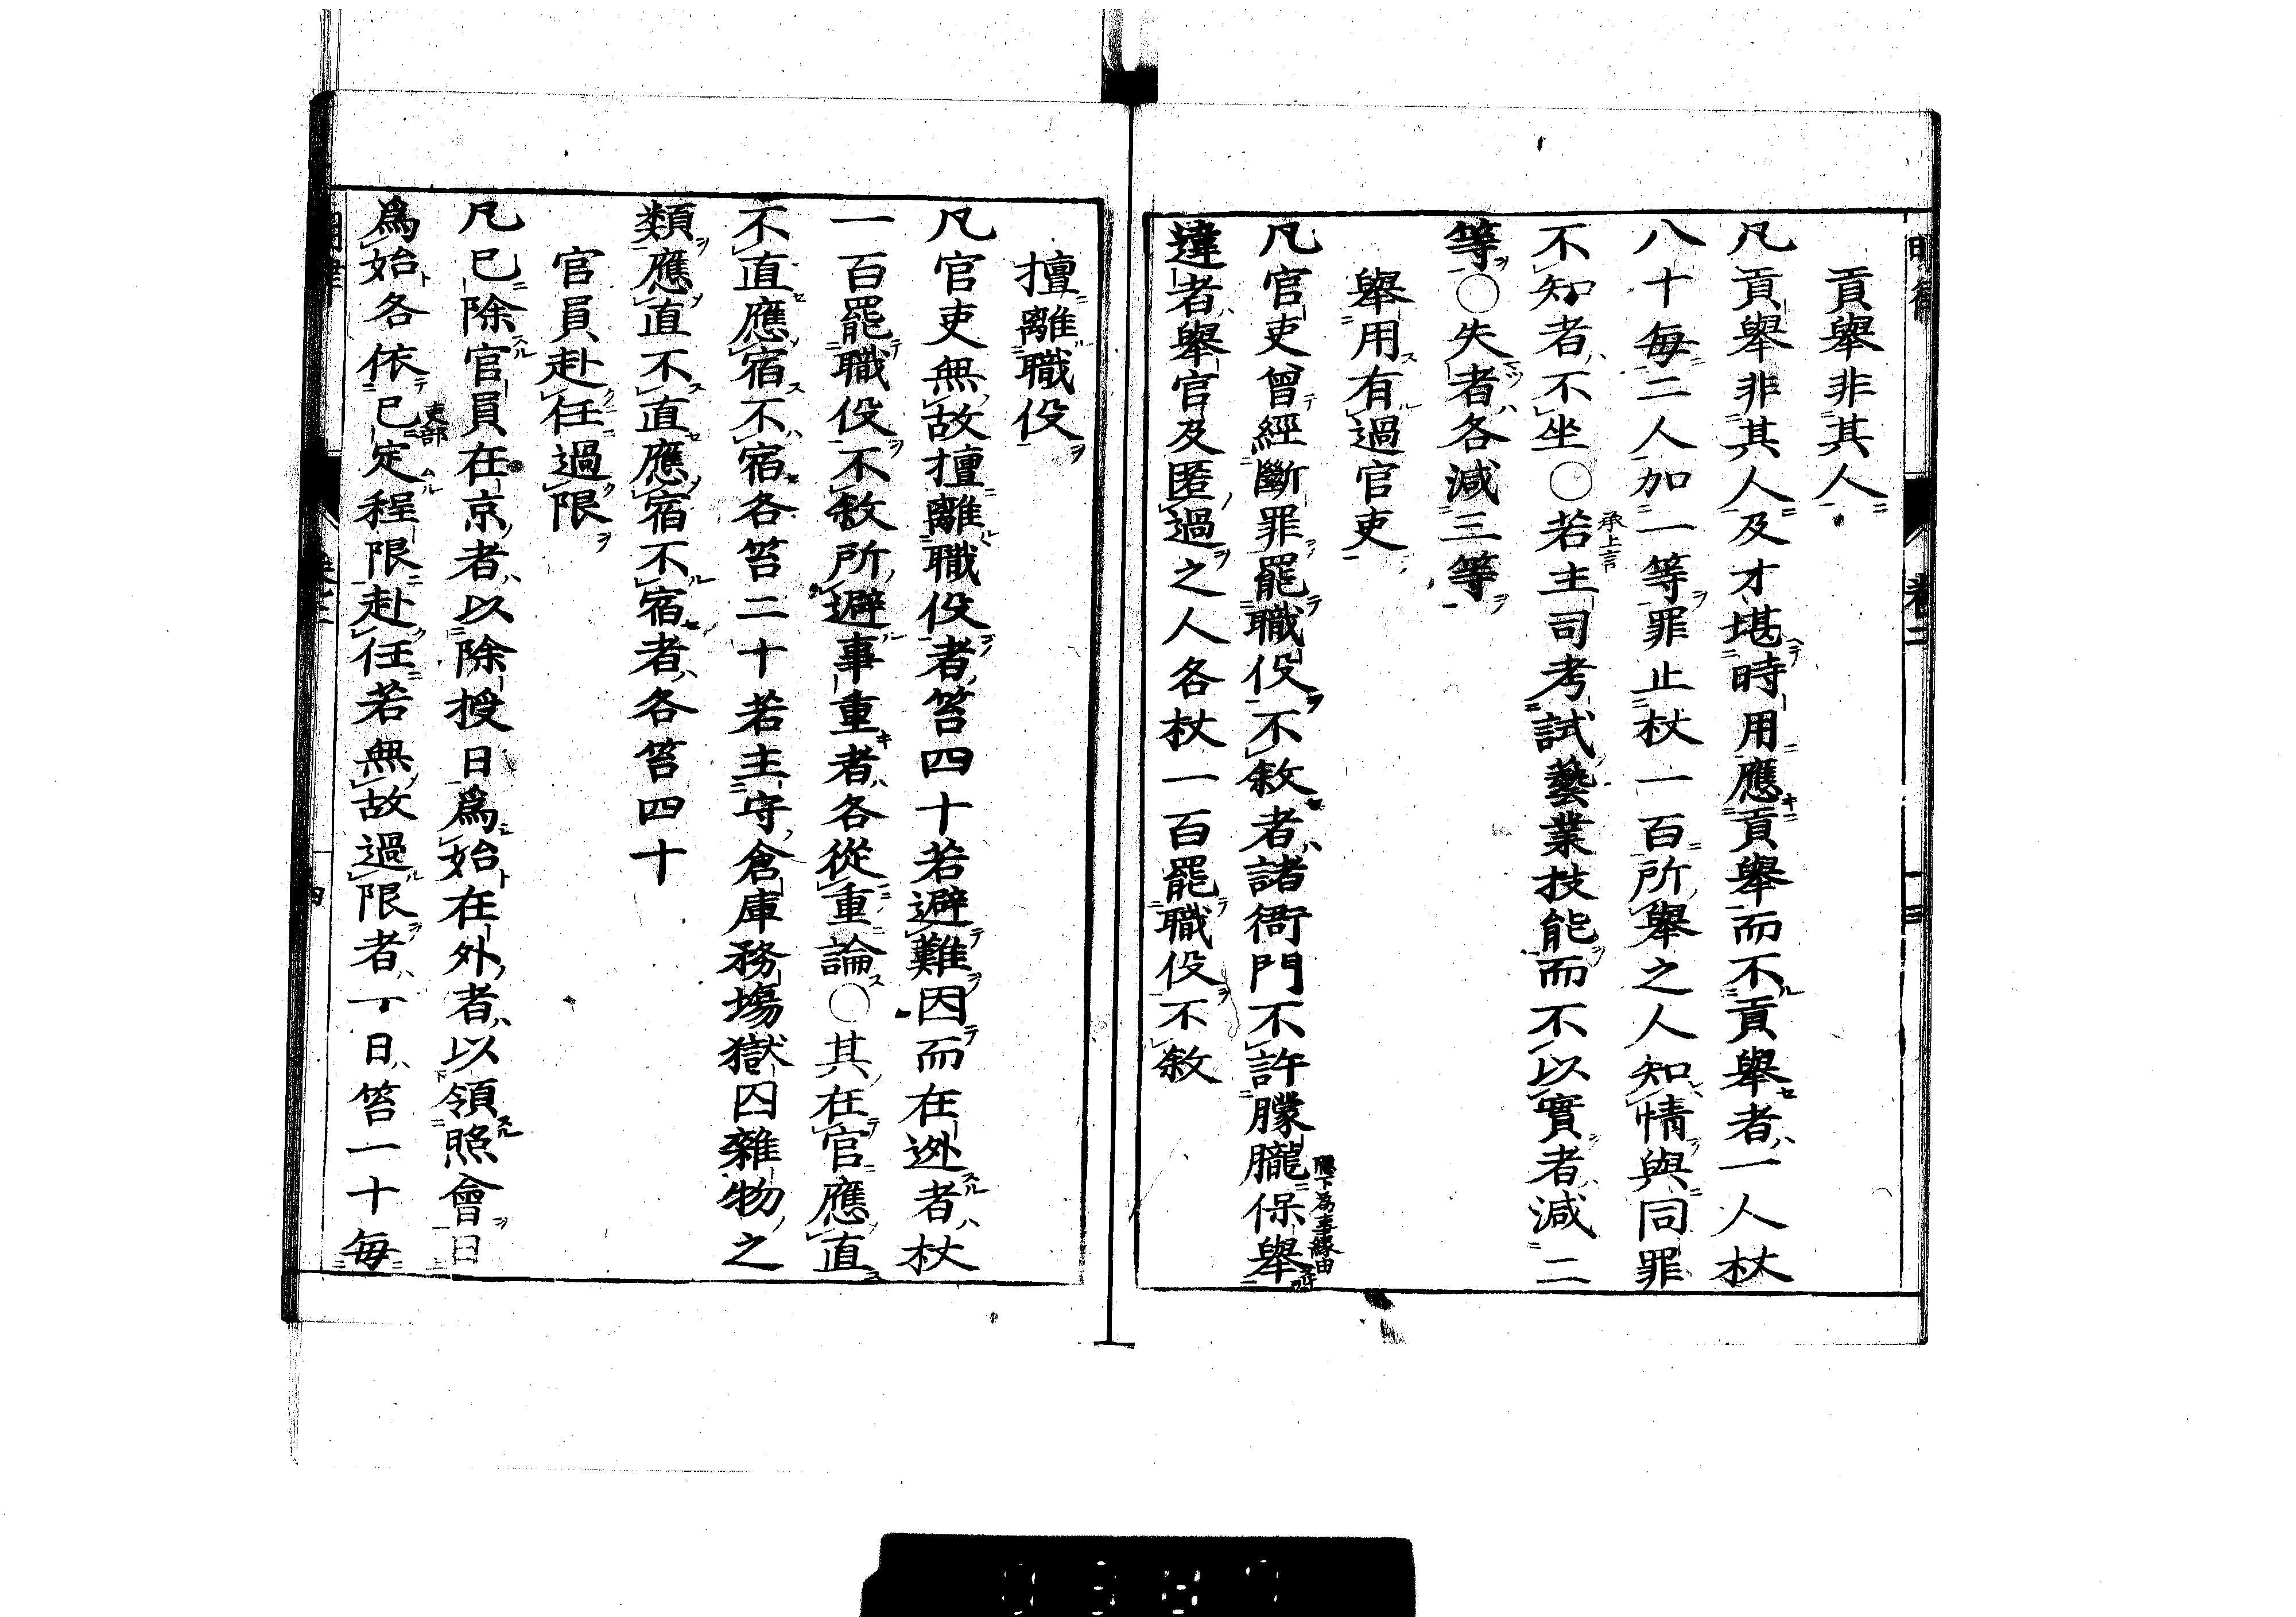 貢舉非其人
凡貢舉非其人及才堪時用應貢舉而不貢舉者一人杖
八十每二人加一等罪止杖一百所舉之人知情與同罪
不知者不坐○若主司考試藝業技能而不以實者減二
承上言
等○失者各減三等
舉用有過官吏
凡官吏曾經斷罪罷職役不敘者諸衙門不許朦朧保舉
違者舉官及匿過之人各杖一百罷職役不敘
擅離職役
凡官吏無故擅離職役者笞四十若避難因而在逃者杖
一百罷職役不敘所避事重者各從重論○其在官應直
不直應宿不宿各笞二十若主守倉庫務場獄囚雜物之
類應直不直應宿不宿者各笞四十
官員赴任過限
凡已除官員在京者以除授日為始在外者以領照會日
吏部
為始各依已定程限赴任若無故過限者一日笞一十每